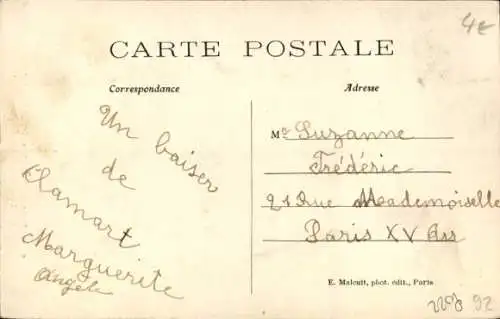 4€
CARTE POSTALE
Correspondance
Adresse
Un baiser
de
Clamart
Marguerite
Angèle
Me Suzanne
Frédéric
21 Rue Mademoiselle
Paris XV Ass
E. Malcuit, phot. édit., Paris
92